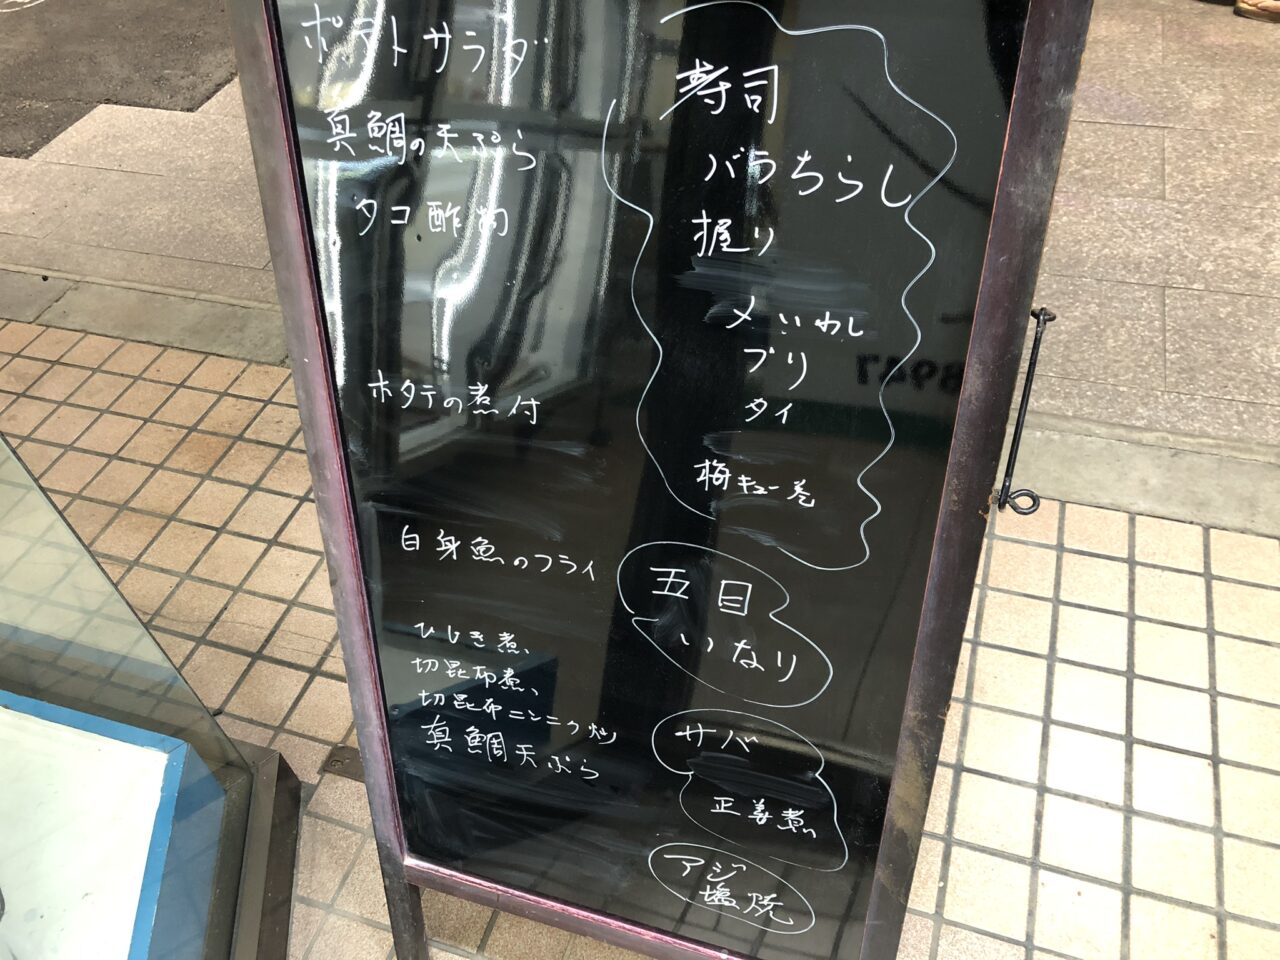 ポテトサラダ
真鯛の天ぷら
タコ酢物
ホタテの煮付
白身魚のフライ
ひじき煮
切昆布煮
切昆布ニンニク炒
真鯛天ぷら
寿司
バラちらし
握り
〆いわし
ブリ
タイ
梅キュー巻
五目
いなり
サバ
生姜煮
アジ
塩焼
8947